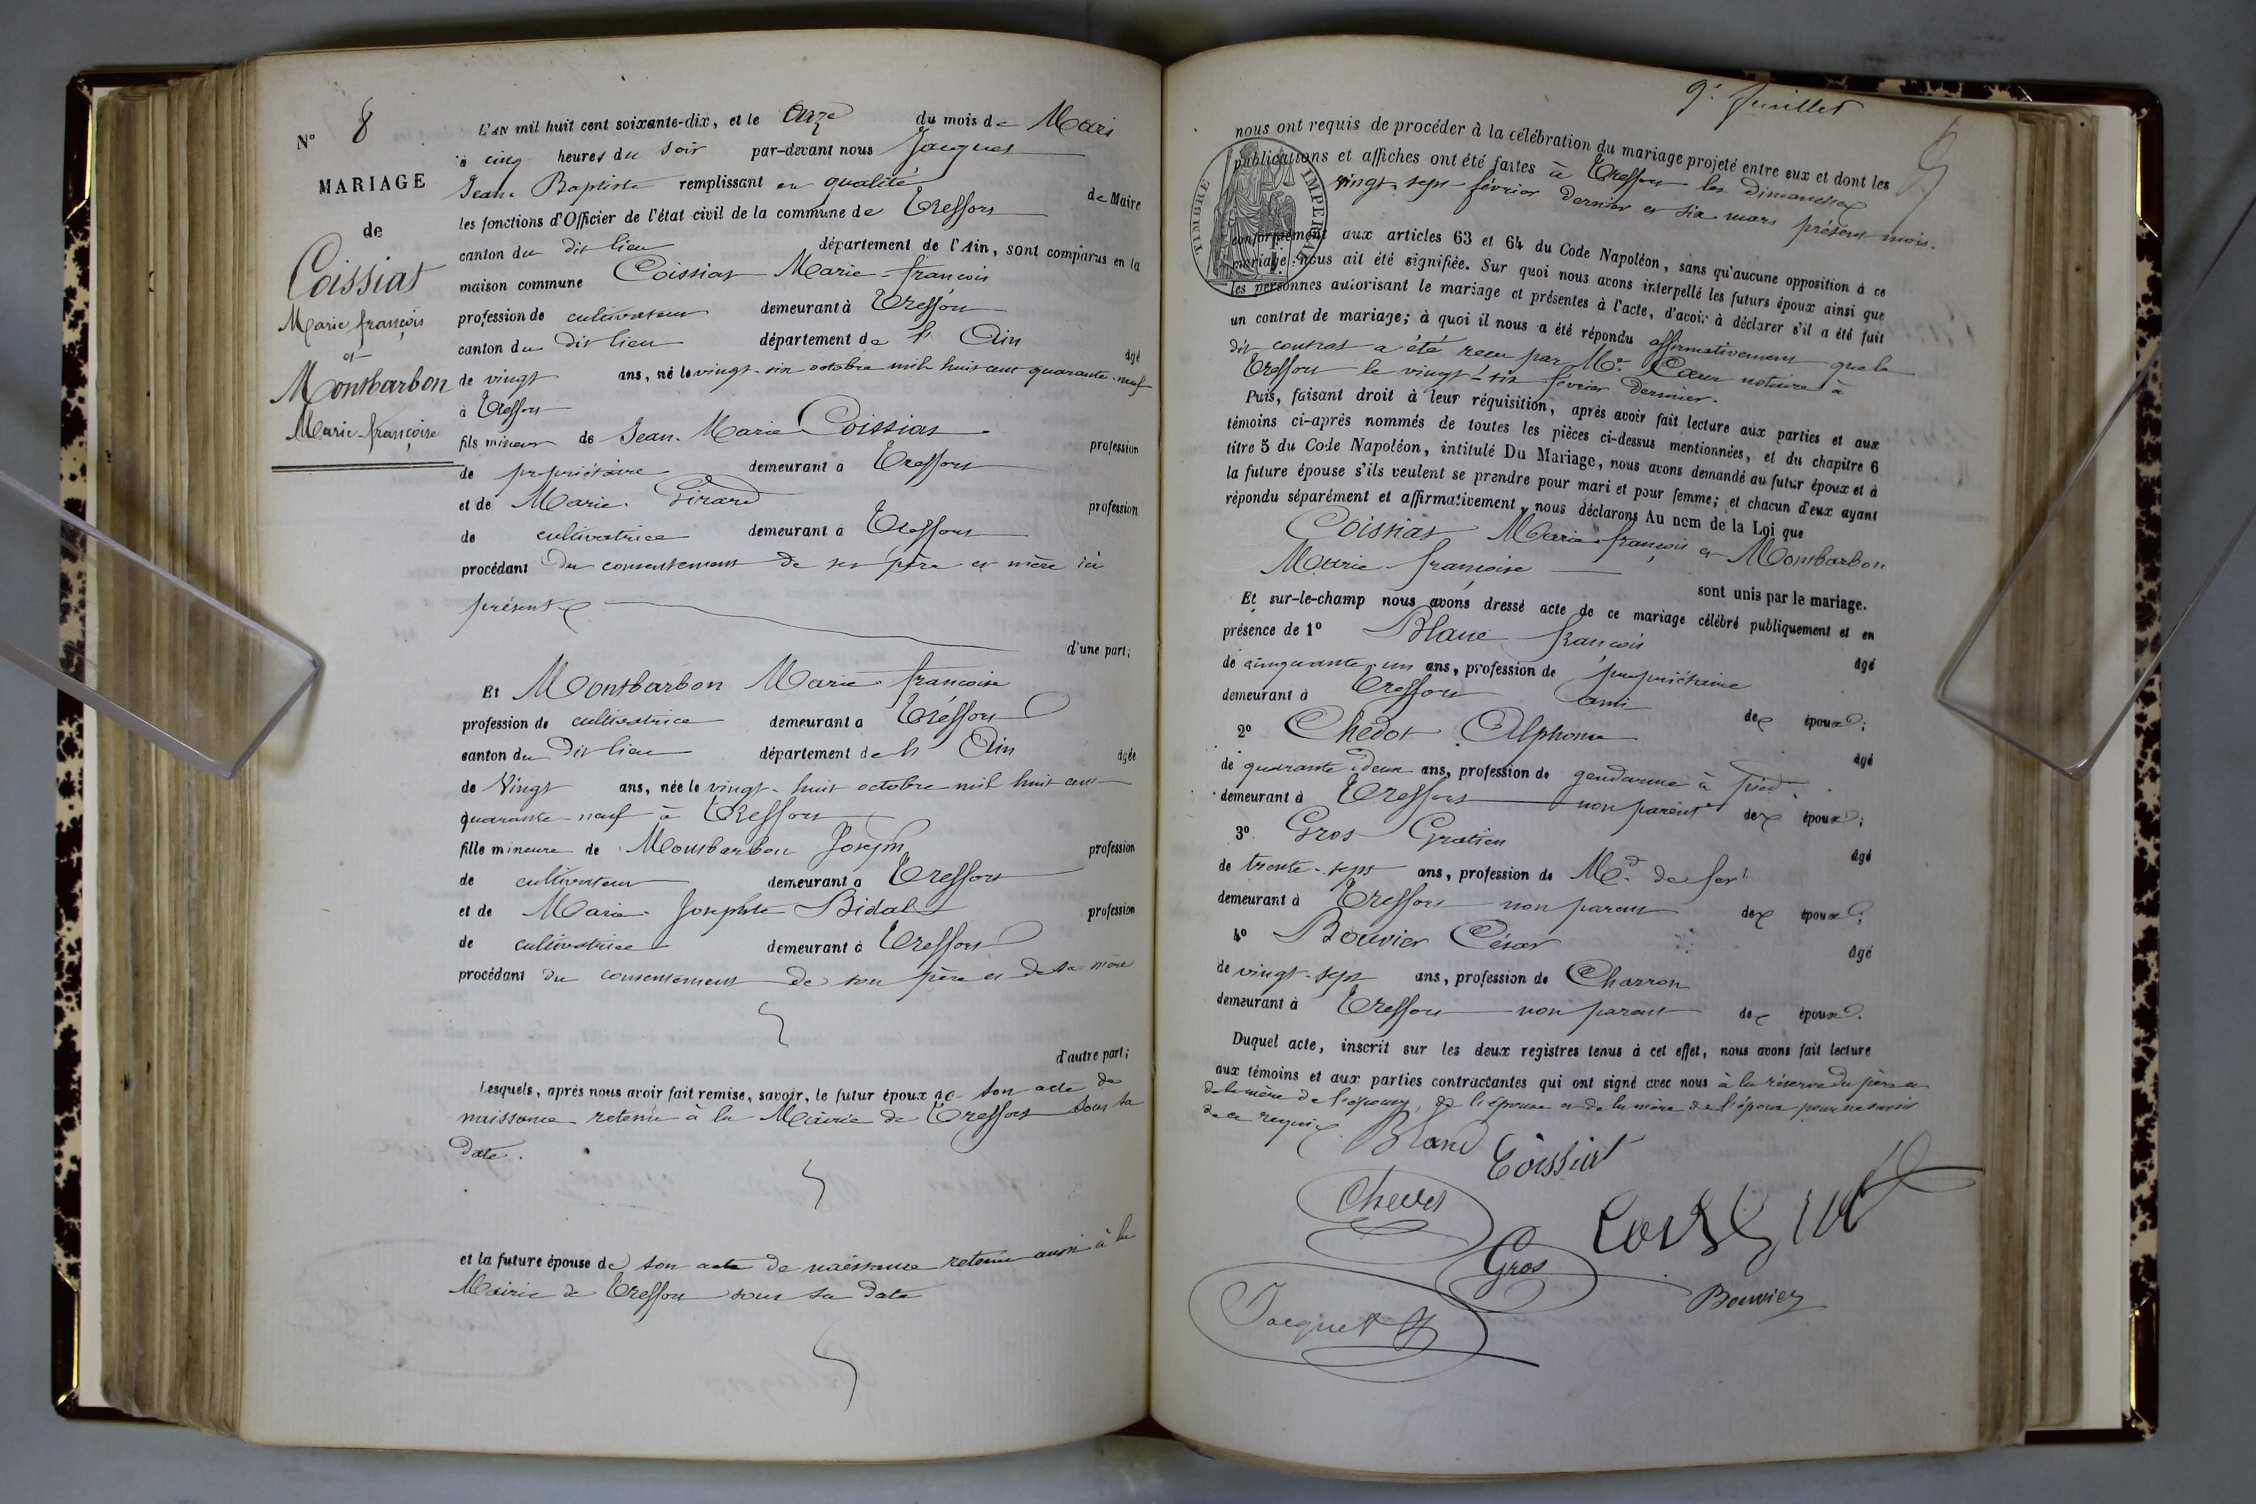 N° 8
MARIAGE
de
Coissiat
Marie françois
et
Montbarbon
Marie-françoise
L'AN mil huit cent soixante-dix, et le onze du mois de Mars
à cinq heures du soir par-devant nous Jacquet
Jean-Baptiste remplissant en qualité de Maire
les fonctions d'Officier de l'état civil de la commune de Treffort
canton du dit lieu département de l'Ain, sont comparus en la
maison commune Coissiat Marie-françois
profession de cultivateur demeurant à Treffort
canton du dit lieu département de l' Ain âgé
de vingt ans, né le vingt-six octobre mil huit cent quarante-neuf
à Treffort
fils mineur de Jean-Marie Coissiat profession
de propriétaire demeurant à Treffort
et de Marie Girard profession
de cultivatrice demeurant à Treffort
procédant du consentement de ses père et mère ici
présents
d'une part;
Et Montbarbon Marie-françoise
profession de cultivatrice demeurant à Treffort
canton du dit lieu département de l' Ain âgée
de Vingt ans, née le vingt-huit octobre mil huit cent
quarante neuf à Treffort
fille mineure de Montbarbon Joseph profession
de cultivateur demeurant à Treffort
et de Marie-Josephte Bidal profession
de cultivatrice demeurant à Treffort
procédant du consentement de son père et de sa mère
d'autre part;
Lesquels, après nous avoir fait remise, savoir, le futur époux de son acte de
naissance retenu à la Mairie de Treffort sous sa
date.
et la future épouse de son acte de naissance retenu aussi à la
Mairie de Treffort sous sa date
9e feuillet
nous ont requis de procéder à la célébration du mariage projeté entre eux et dont les
publications et affiches ont été faites à Treffort les dimanches
vingt-sept février dernier et six mars présent mois.
conformément aux articles 63 et 64 du Code Napoléon, sans qu'aucune opposition à ce
mariage nous ait été signifiée. Sur quoi nous avons interpellé les futurs époux ainsi que
les personnes autorisant le mariage et présentes à l'acte, d'avoir à déclarer s'il a été fait
un contrat de mariage; à quoi il nous a été répondu affirmativement que le
dit contrat a été reçu par Me Coeur notaire à
Treffort le vingt-six février dernier.
TIMBRE IMPERIAL
Puis, faisant droit à leur réquisition, après avoir fait lecture aux parties et aux
témoins ci-après nommés de toutes les pièces ci-dessus mentionnées, et du chapitre 6
titre 5 du Code Napoléon, intitulé Du Mariage, nous avons demandé au futur époux et à
la future épouse s'ils veulent se prendre pour mari et pour femme; et chacun d'eux ayant
répondu séparément et affirmativement, nous déclarons Au nom de la Loi que
Coissiat Marie-françois et Montbarbon
Marie-françoise
sont unis par le mariage.
Et sur-le-champ nous avons dressé acte de ce mariage célébré publiquement et en
présence de 1° Blanc françois âgé
de cinquante-un ans, profession de propriétaire
demeurant à Treffort ami des époux;
2° Chedot Alphonse âgé
de quarante deux ans, profession de gendarme à pied
demeurant à Treffort non parent des époux;
3° Gros Gratien âgé
de trente-sept ans, profession de Md de fer
demeurant à Treffort non parent des époux;
4° Bouvier César âgé
de vingt-sept ans, profession de Charron
demeurant à Treffort non parent des époux.
Duquel acte, inscrit sur les deux registres tenus à cet effet, nous avons fait lecture
aux témoins et aux parties contractantes qui ont signé avec nous à la réserve du père et
de la mère de l'épouse, de l'épouse et de la mère de l'époux pour ne savoir
de ce requis.
Blanc Coissiat
Chedot
Gros Coissiat
Jacquet Bouvier